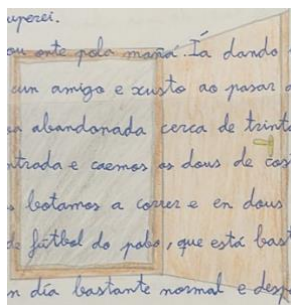 uperei.
ou onte pola mañá. Ía dando
cun amigo e xusto ao pasar
abandonada cerca de trinta
ntrada e caemos os dous de cos
botamos a correr e en dous
de fútbol do pobo, que está bast
n día bastante normal e desp